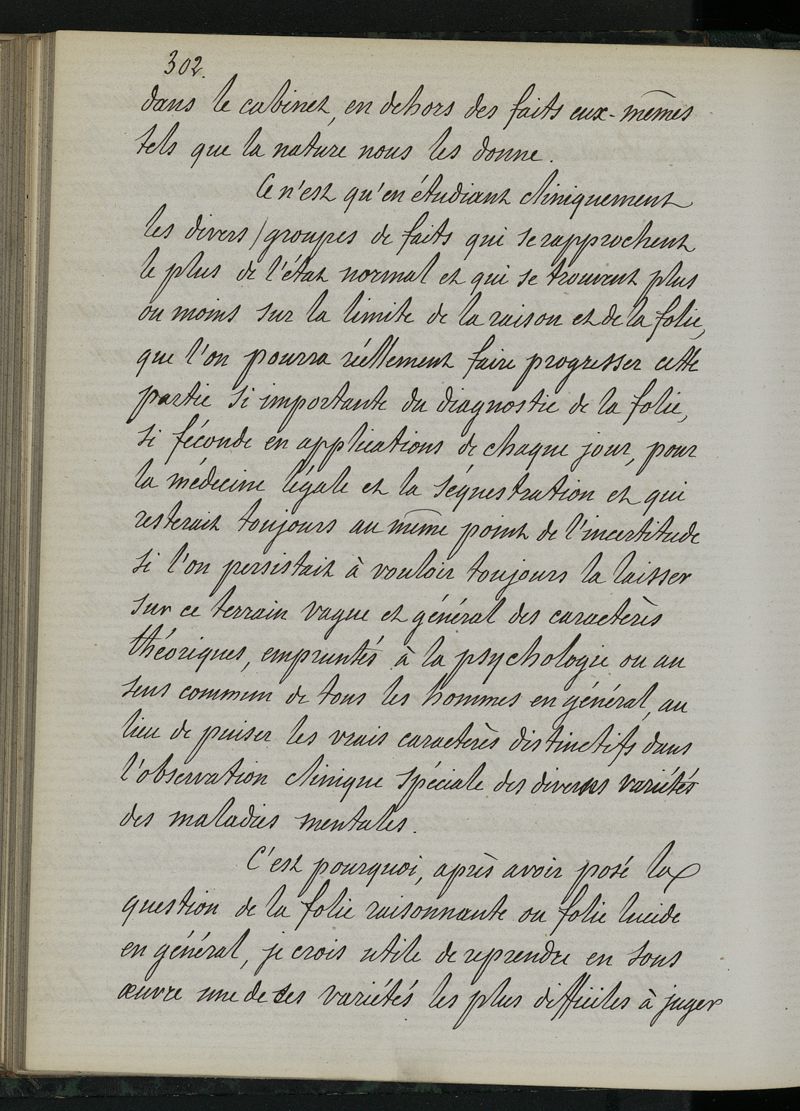 302.
dans le cabinet, en dehors des faits eux-mêmes
tels que la nature nous les donne.
Ce n'est qu'en étudiant cliniquement
les divers groupes de faits qui se rapprochent
le plus de l'état normal et qui se trouvent plus
ou moins sur la limite de la raison et de la folie,
que l'on pourra réellement faire progresser cette
partie si importante du diagnostic de la folie,
si féconde en applications de chaque jour, pour
la médecine légale et la séquestration et qui
resterait toujours au même point de l'incertitude
si l'on persistait à vouloir toujours la laisser
sur ce terrain vague et général des caractères
théoriques, empruntés à la psychologie ou au
sens commun de tous les hommes en général, au
lieu de puiser les vrais caractères distinctifs dans
l'observation clinique spéciale des diverses variétés
des maladies mentales.
C'est pourquoi, après avoir posé la
question de la folie raisonnante ou folie lucide
en général, je crois utile de reprendre en sous
œuvre une de ses variétés les plus difficiles à juger